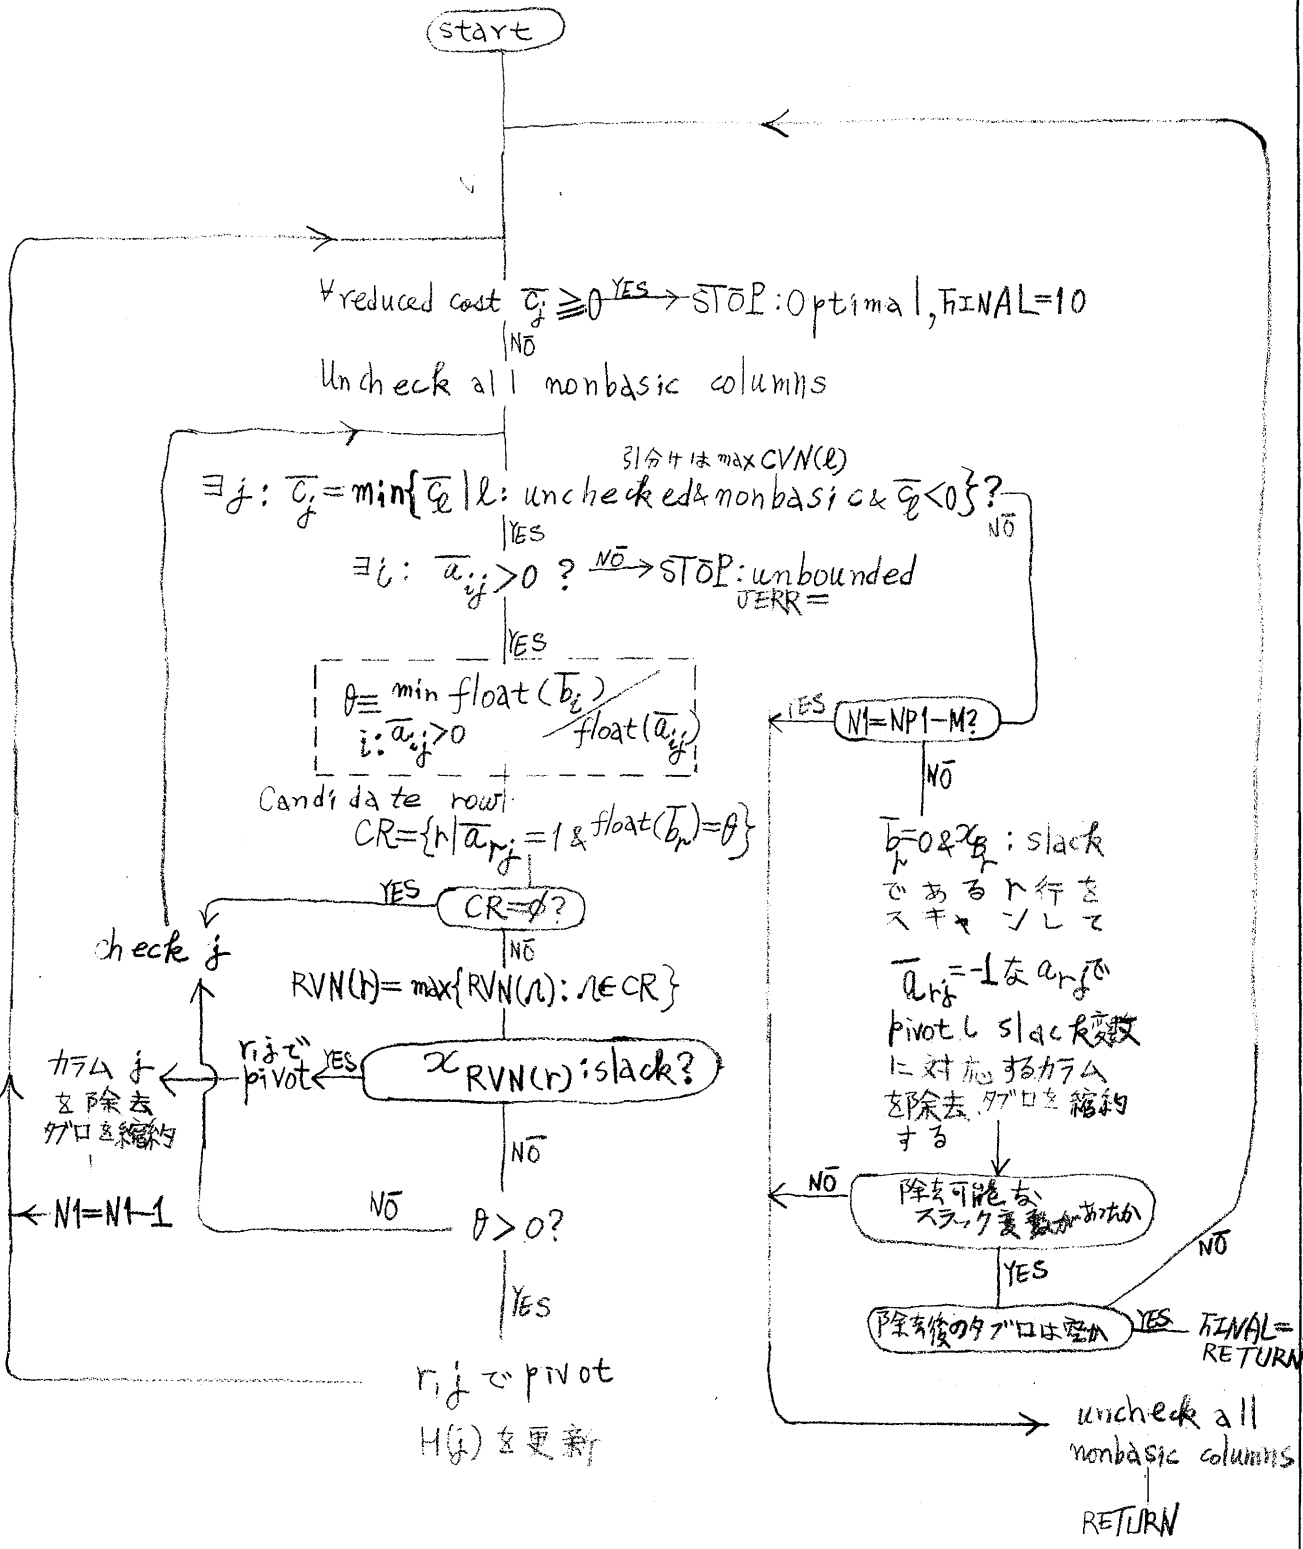 start
∀reduced cost c̄j ≧ 0 YES → STOP:Optimal, FINAL=10
NO
Uncheck all nonbasic columns
引分けは max CVN(l)
∃j: c̄j = min{c̄l | l: unchecked & nonbasic & c̄l < 0}?
NO
YES
∃i: āij > 0 ? NO → STOP:unbounded
JERR=
YES
θ ≡ min float(b̄i) / float(āij)
i: āij > 0
Candidate row
CR={r | ārj = 1 & float(b̄r) = θ}
YES
CR=∅?
check j
NO
RVN(r) = max{RVN(r): r ∈ CR}
xRVN(r) : slack?
YES
r,jで
pivot
カラム j
を除去
タブロを縮約
N1=N1-1
NO
θ > 0?
NO
YES
r,j で pivot
H(j) を更新
N1=NP1-M?
YES
NO
b̄r=0 & xBr : slack
である r 行を
スキャンして
ārj = -1 な arjで
pivot し slack変数
に対応するカラム
を除去、タブロを縮約
する
除去可能な
スラック変数があったか
NO
YES
除去後のタブロは空か
NO
YES
FINAL=
RETURN
uncheck all
nonbasic columns
RETURN